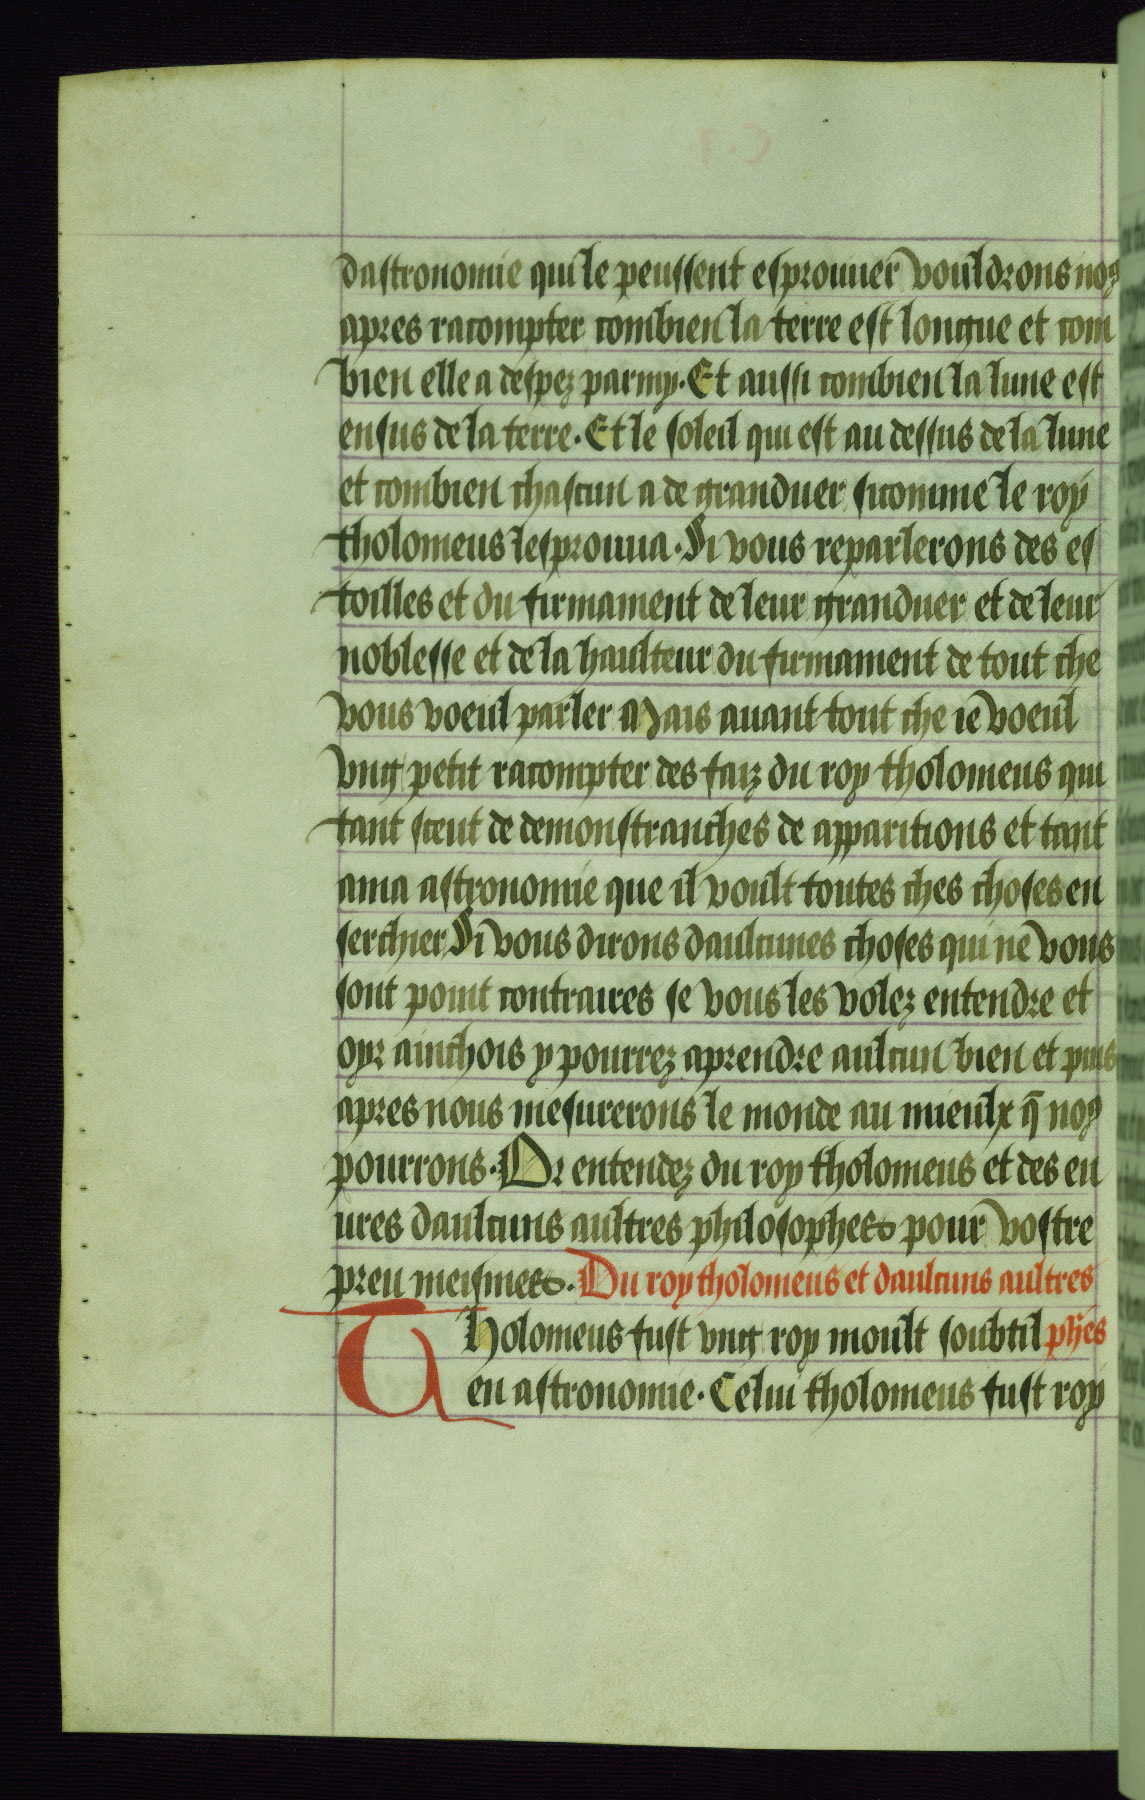 dastronomie qui le peussent esprouuer vouldrons noꝯ
apres racompter combien la terre est longue et com
bien elle a despez parmy. Et aussi combien la lune est
ensus de la terre. Et le soleil qui est au dessus de la lune
et combien chascun a de granduer sicomme le roy
tholomeus lesprouua. Si vous reparlerons des es
toilles et du firmament de leur granduer et de leur
noblesse et de la haulteur du firmament de tout che
vous voeul parler Mais auant tout che ie voeul
vng petit racompter des faiz du roy tholomeus qui
tant sceut de demonstranches de apparitions et tant
ama astronomie que il voult toutes ches choses en
serchier Si vous dirons daulcunes choses qui ne vous
sont point contraires se vous les volez entendre et
oyr ainchois y pourrez aprendre aulcun bien et puis
apres nous mesurerons le monde au mieulx q̄ noꝯ
pourrons. Or entendez du roy tholomeus et des eu
ures daulcuns aultres philosophes pour vostre
preu meismes. Du roy tholomeus et daulcuns aultres
Tholomeus fust vng roy moult soubtil ph̄es
en astronomie. Celui tholomeus fust roy